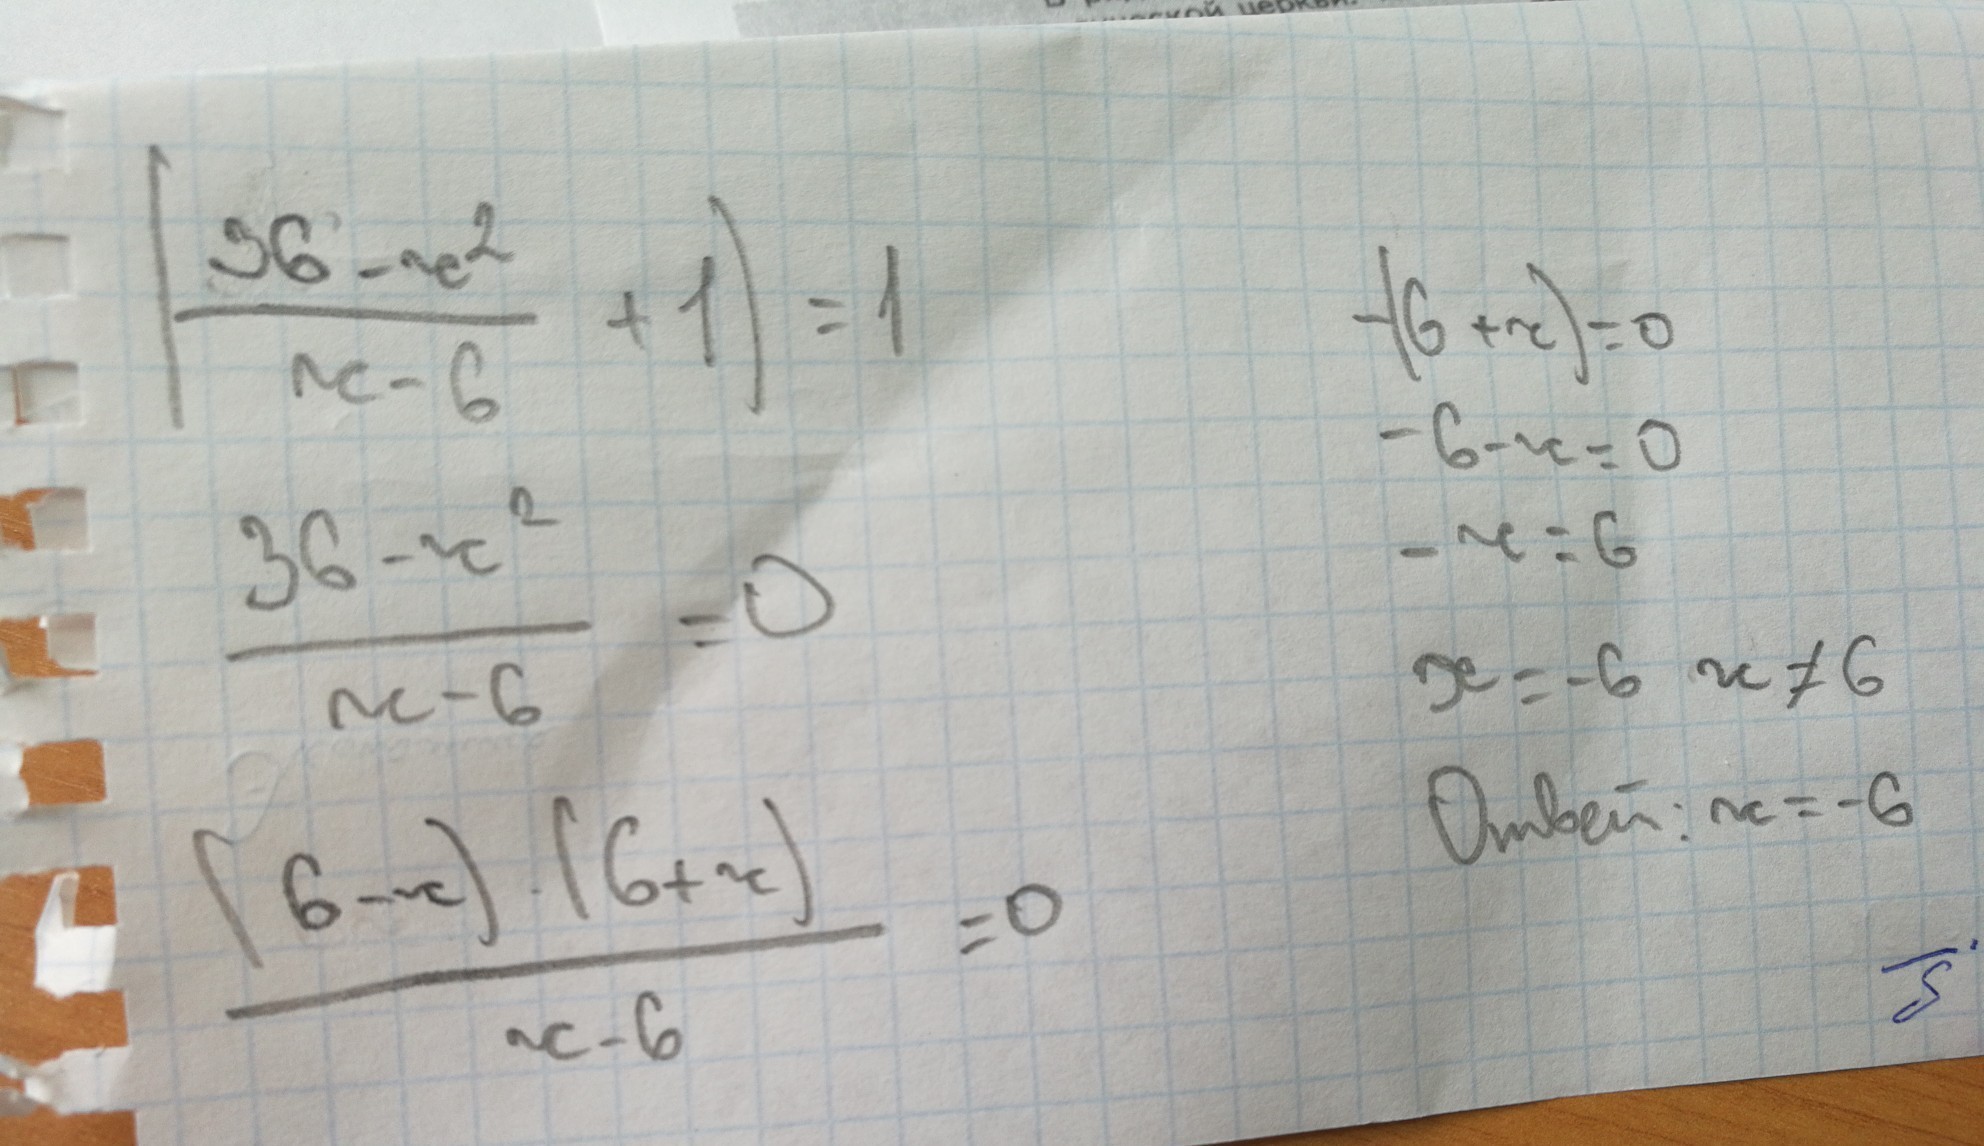 ической церкви.
(36-x²)/(x-6) + 1) = 1
(36-x²)/(x-6) = 0
((6-x)·(6+x))/(x-6) = 0
-(6+x)=0
-6-x=0
-x=6
x=-6 x≠6
Ответ: x=-6
5